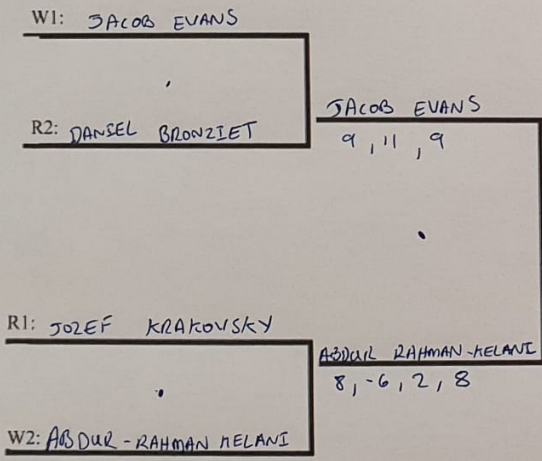 W1: JACOB EVANS
R2: DANIEL BRONZIET
JACOB EVANS
9, 11, 9
R1: JOZEF KRAKOVSKY
W2: ABDUR-RAHMAN KELANI
ABDUR RAHMAN-KELANI
8, -6, 2, 8